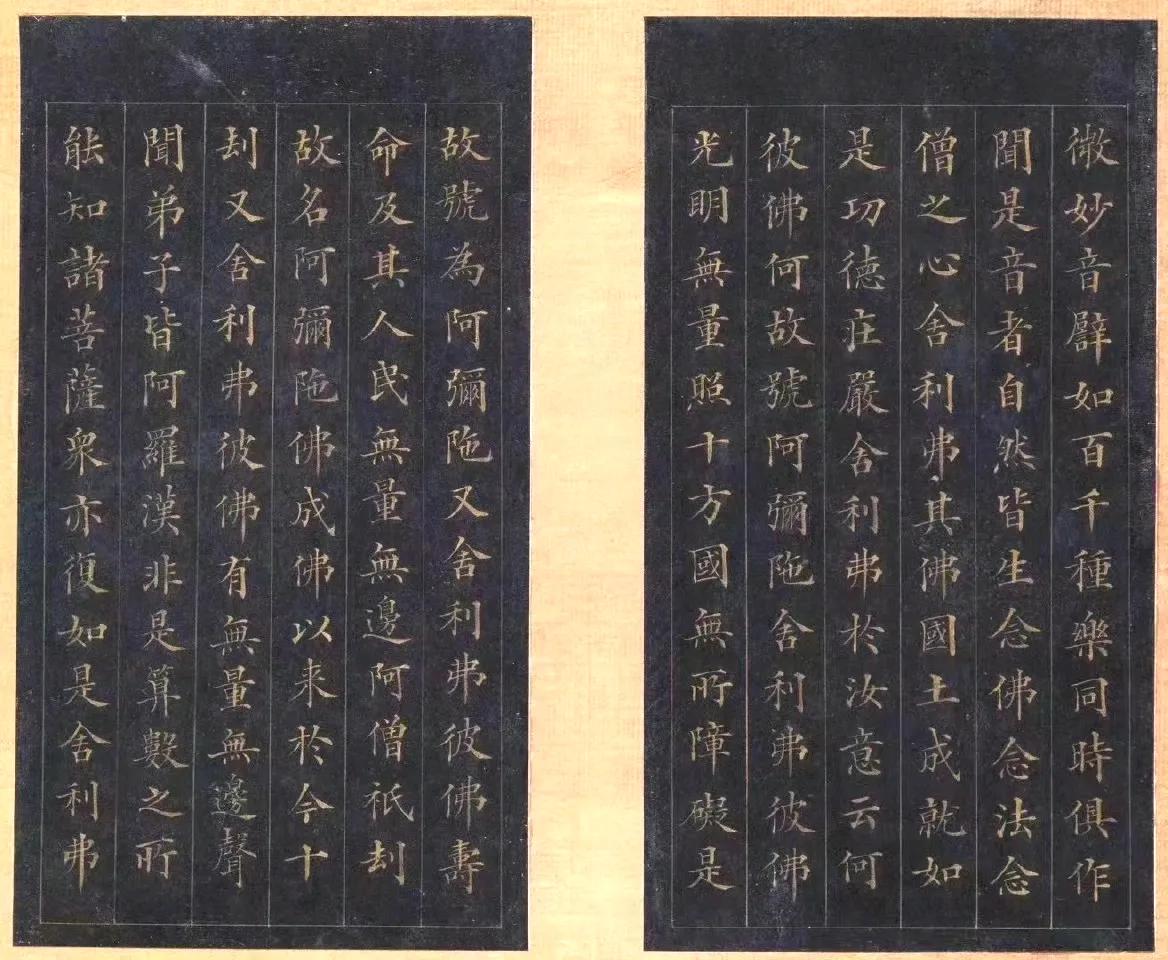 微妙音譬如百千種樂同時俱作
聞是音者自然皆生念佛念法念
僧之心舍利弗其佛國土成就如
是功德莊嚴舍利弗於汝意云何
彼佛何故號阿彌陁舍利弗彼佛
光明無量照十方國無所障礙是
故號為阿彌陁又舍利弗彼佛壽
命及其人民無量無邊阿僧祇刦
故名阿彌陁佛成佛以来於今十
刦又舍利弗彼佛有無量無邊聲
聞弟子皆阿羅漢非是算數之所
能知諸菩薩衆亦復如是舍利弗